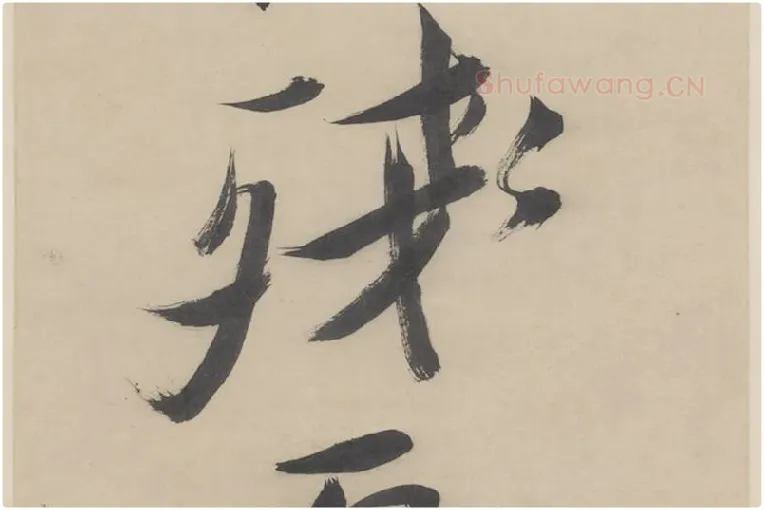 殘
Shufawang.CN